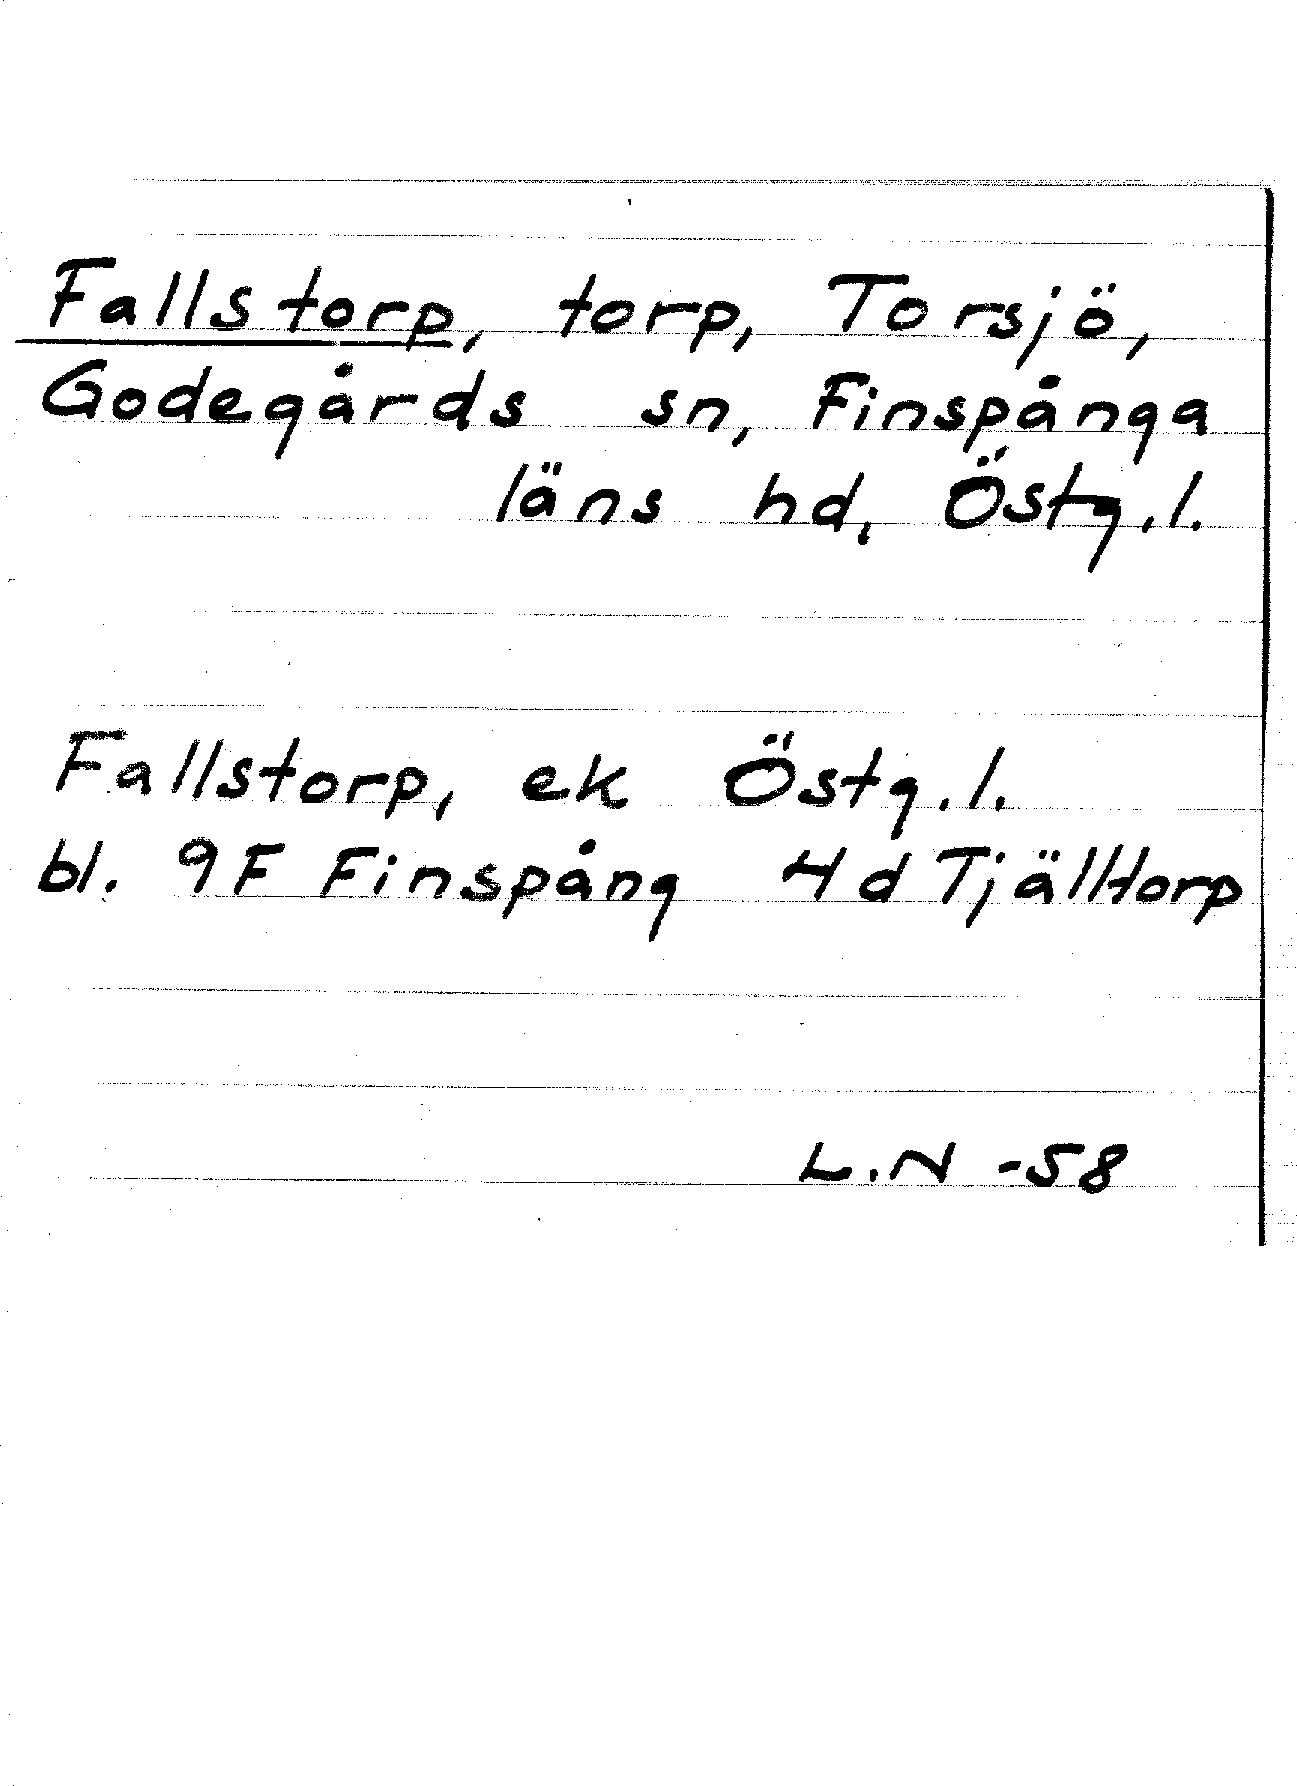 Fallstorp, torp, Torsjö,
Godegårds sn, Finspånga
läns hd, Östg.l.
Fallstorp, ek Östg.l.
bl. 9F Finspång 4d Tjälltorp
L.N -58